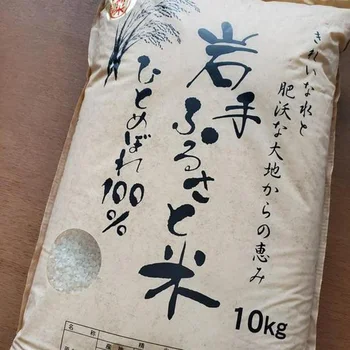 きれいな水と
肥沃な大地からの恵み
岩手
ふるさと米
ひとめぼれ100%
10kg
名称
精
産